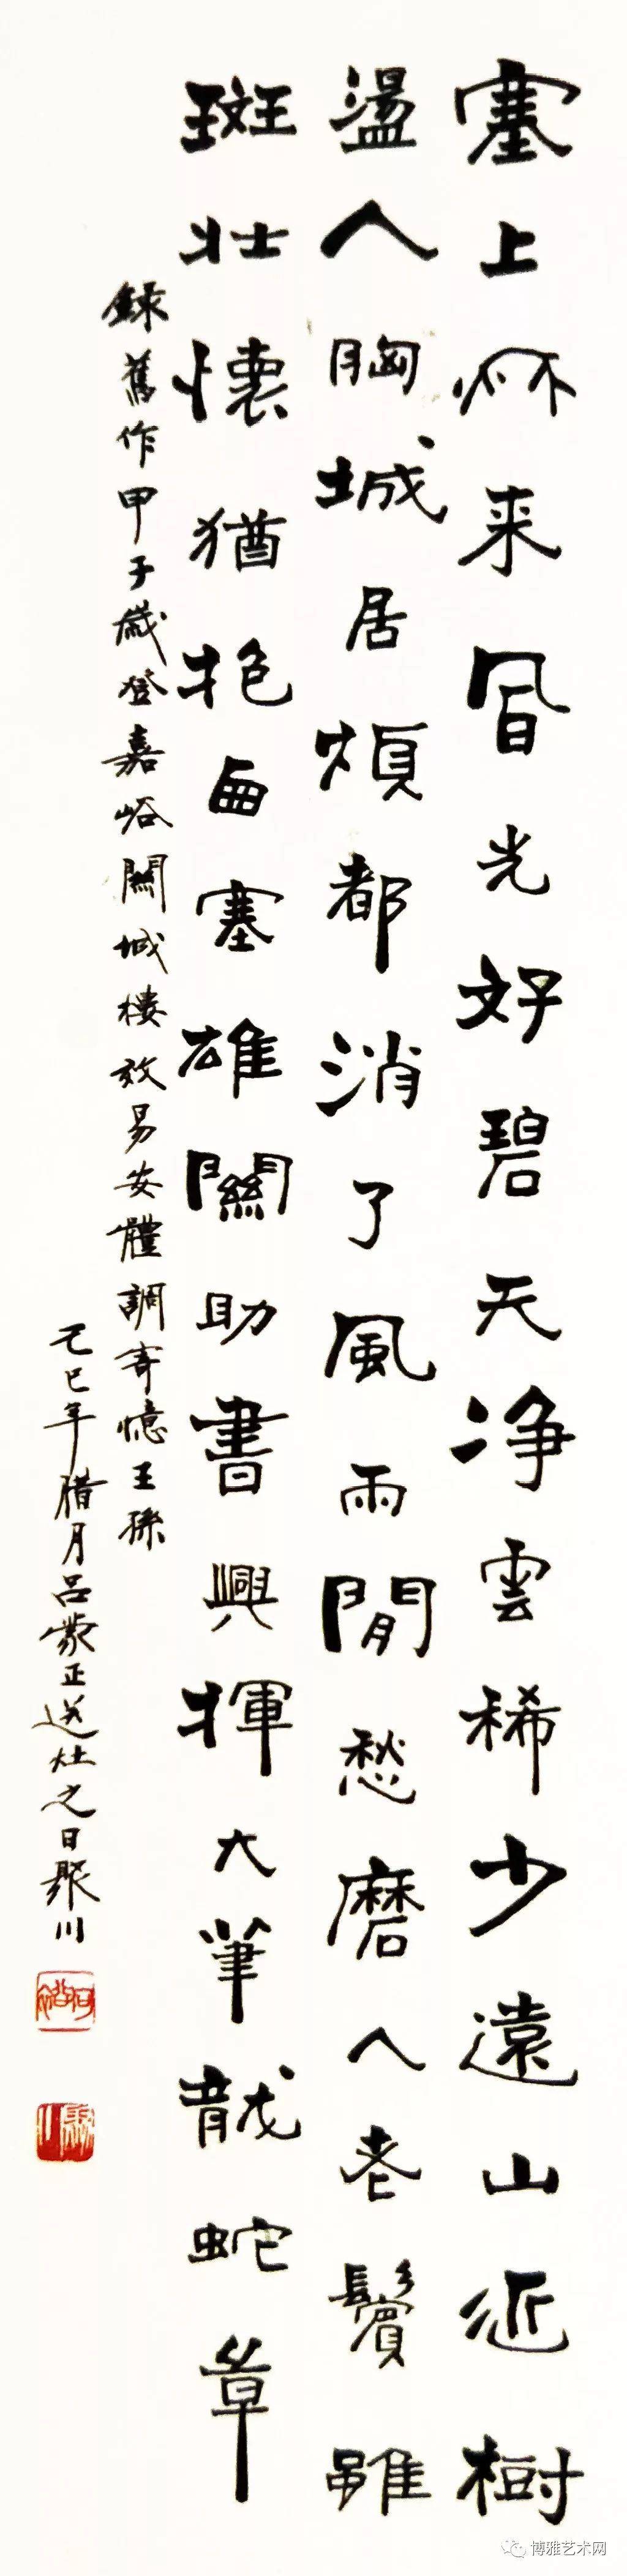 塞上秌来凬光好碧天净雲稀少遠山近樹
盪人胸城居煩都消了風雨閒愁磨人老鬢雖
斑壮懷猶抱西塞雄關助書興揮大筆龍蛇章
録舊作甲子歲登嘉峪關城樓效易安體調寄憶王孫
己巳年腊月吕蒙正送灶之日聚川
博雅艺术网